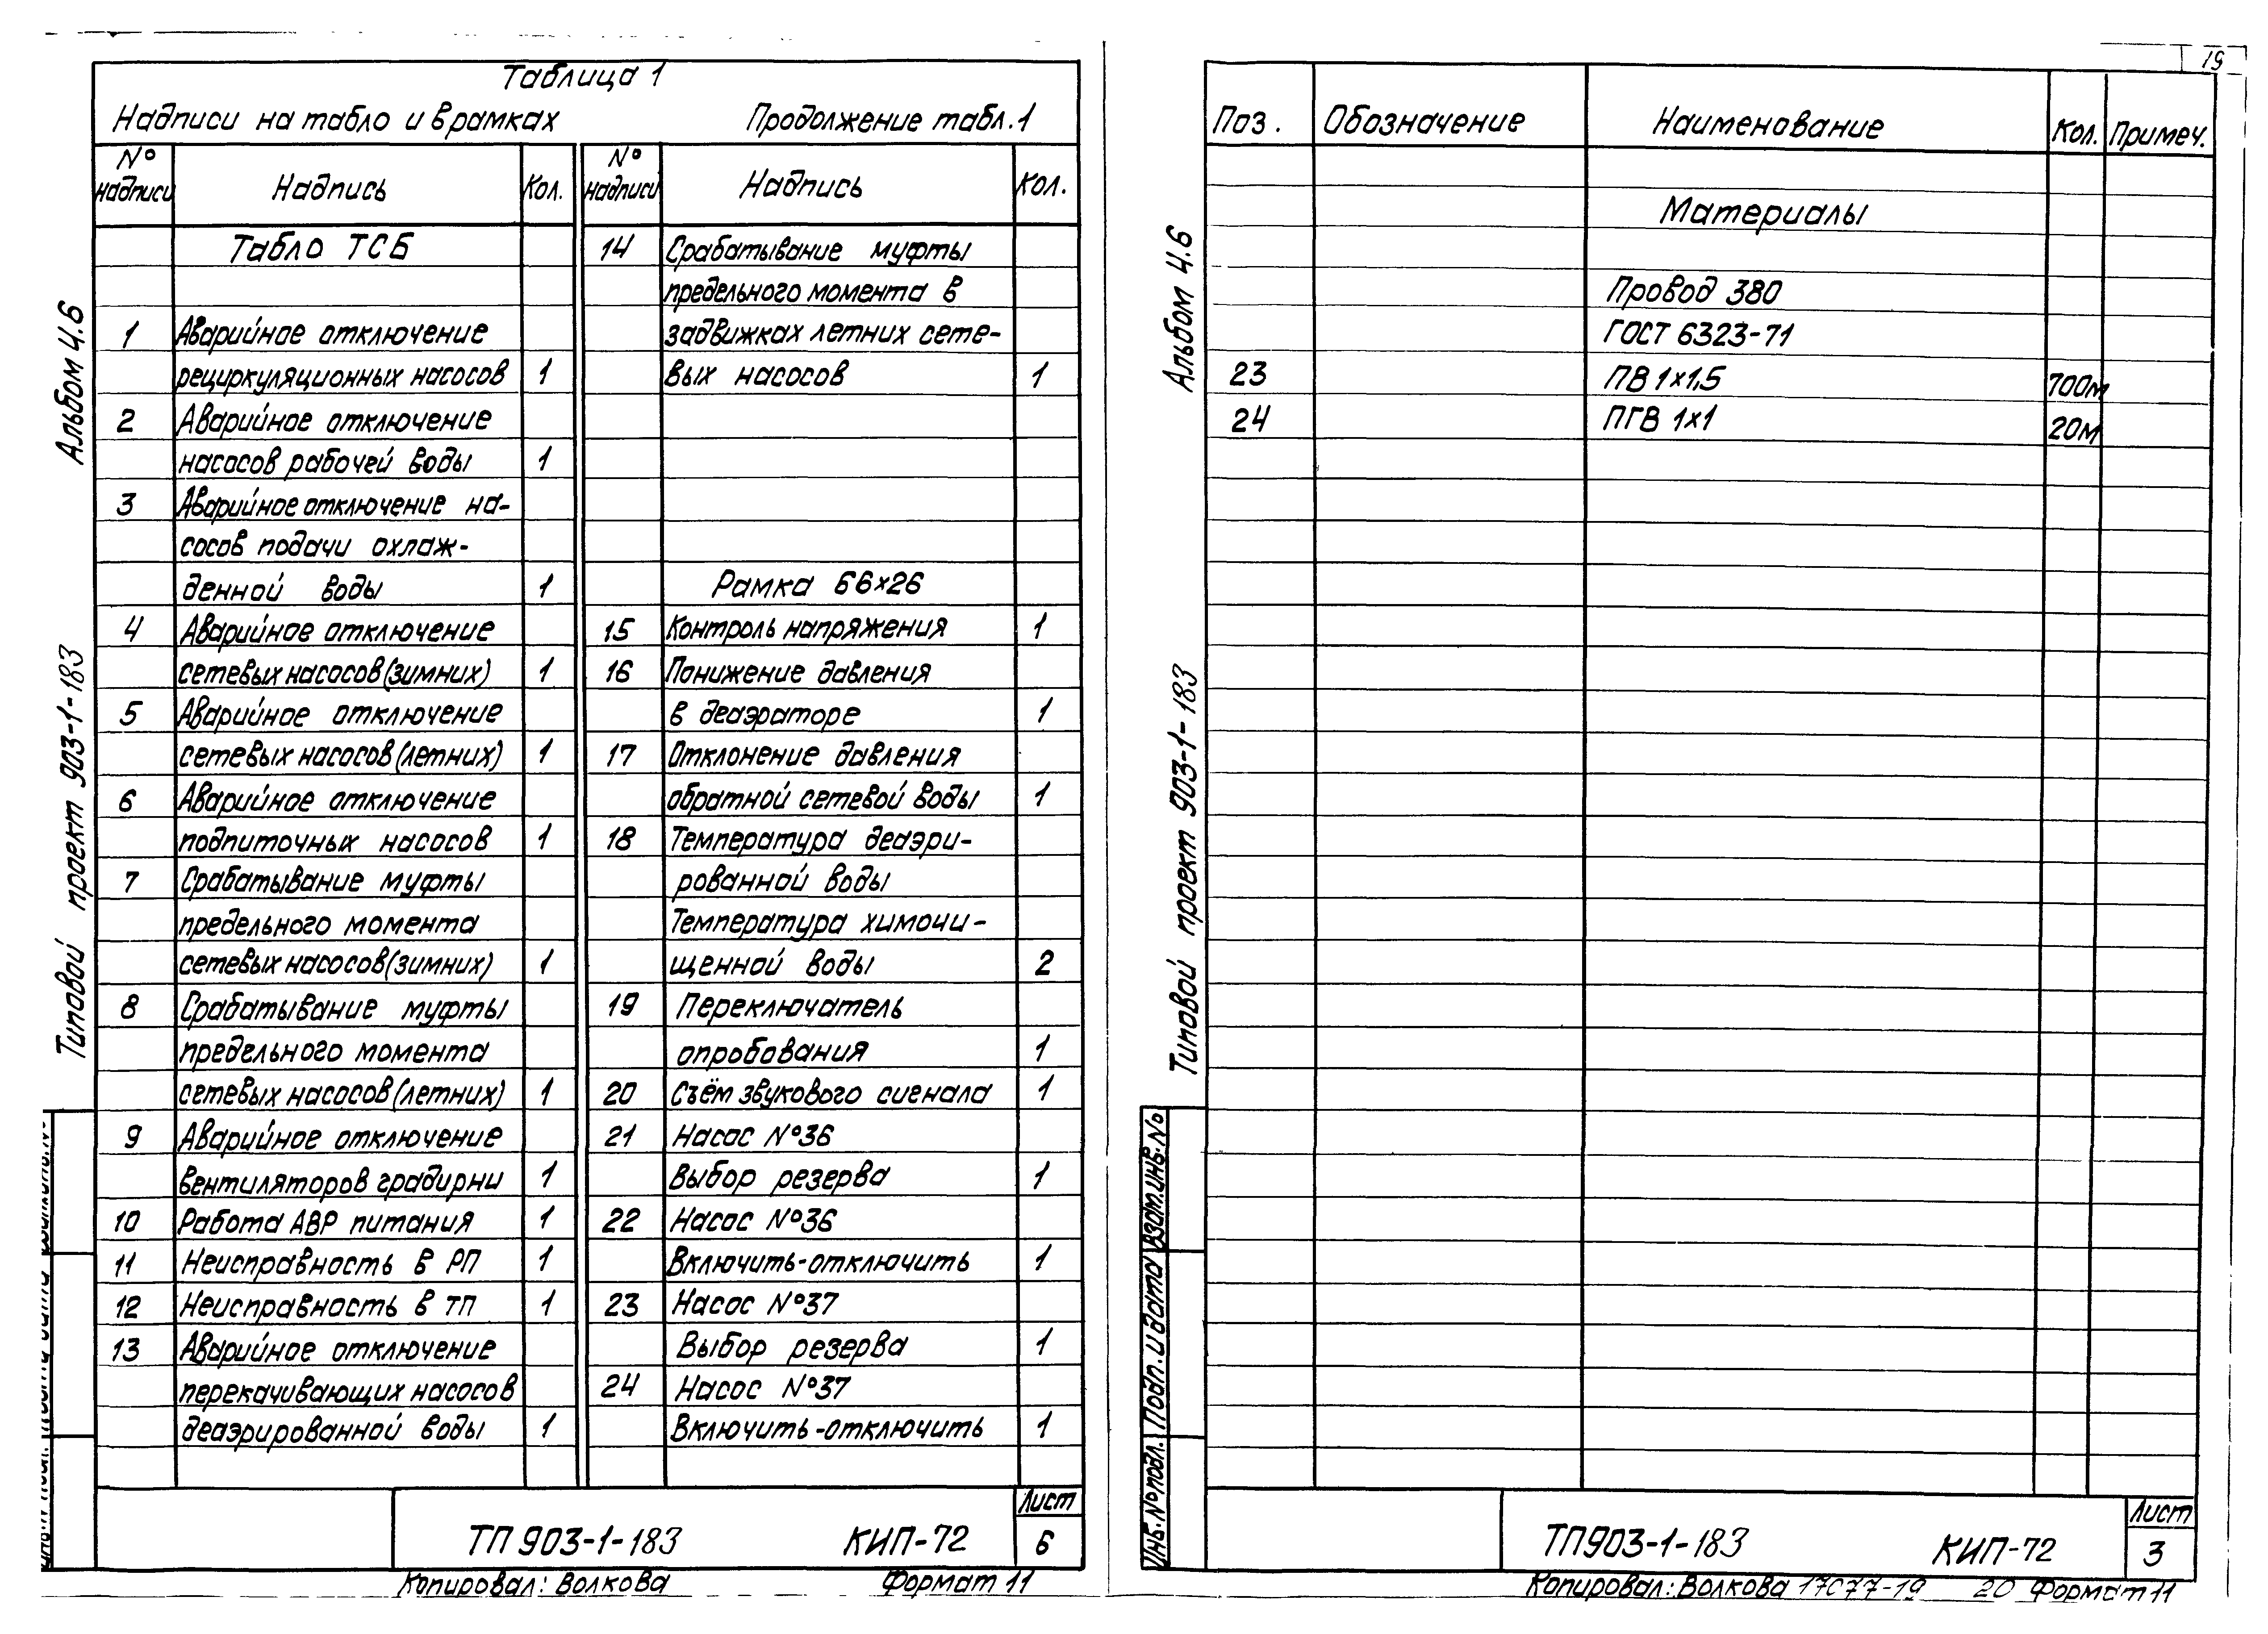 Таблица 1
Надписи на табло и в рамках Продолжение табл. 1
№ надписи Надпись Кол. № надписи Надпись Кол.
Табло ТСБ
1 Аварийное отключение
рециркуляционных насосов 1
2 Аварийное отключение
насосов рабочей воды 1
3 Аварийное отключение на-
сосов подачи охлаж-
денной воды 1
4 Аварийное отключение
сетевых насосов (зимних) 1
5 Аварийное отключение
сетевых насосов (летних) 1
6 Аварийное отключение
подпиточных насосов 1
7 Срабатывание муфты
предельного момента
сетевых насосов (зимних) 1
8 Срабатывание муфты
предельного момента
сетевых насосов (летних) 1
9 Аварийное отключение
вентиляторов градирни 1
10 Работа АВР питания 1
11 Неисправность в РП 1
12 Неисправность в ТП 1
13 Аварийное отключение
перекачивающих насосов
деаэрированной воды 1
14 Срабатывание муфты
предельного момента в
задвижках летних сете-
вых насосов 1
Рамка 66×26
15 Контроль напряжения 1
16 Понижение давления
в деаэраторе 1
17 Отклонение давления
обратной сетевой воды 1
18 Температура деаэри-
рованной воды
Температура химочи-
щенной воды 2
19 Переключатель
опробования 1
20 Съём звукового сигнала 1
21 Насос №36
Выбор резерва 1
22 Насос №36
Включить-отключить 1
23 Насос №37
Выбор резерва 1
24 Насос №37
Включить-отключить 1
Альбом 4.6
Типовой проект 903-1-183
ТП 903-1-183 КИП-72
Лист
6
Копировал: Волкова Формат 11
19
Поз. Обозначение Наименование Кол. Примеч.
Материалы
Провод 380
ГОСТ 6323-71
23 ПВ 1×1,5 700м
24 ПГВ 1×1 20м
Альбом 4.6
Типовой проект 903-1-183
Взам.инв.№
Подп. и дата
Инв.№ подл.
ТП903-1-183 КИП-72
Лист
3
Копировал: Волкова 17077-19 20 Формат 11